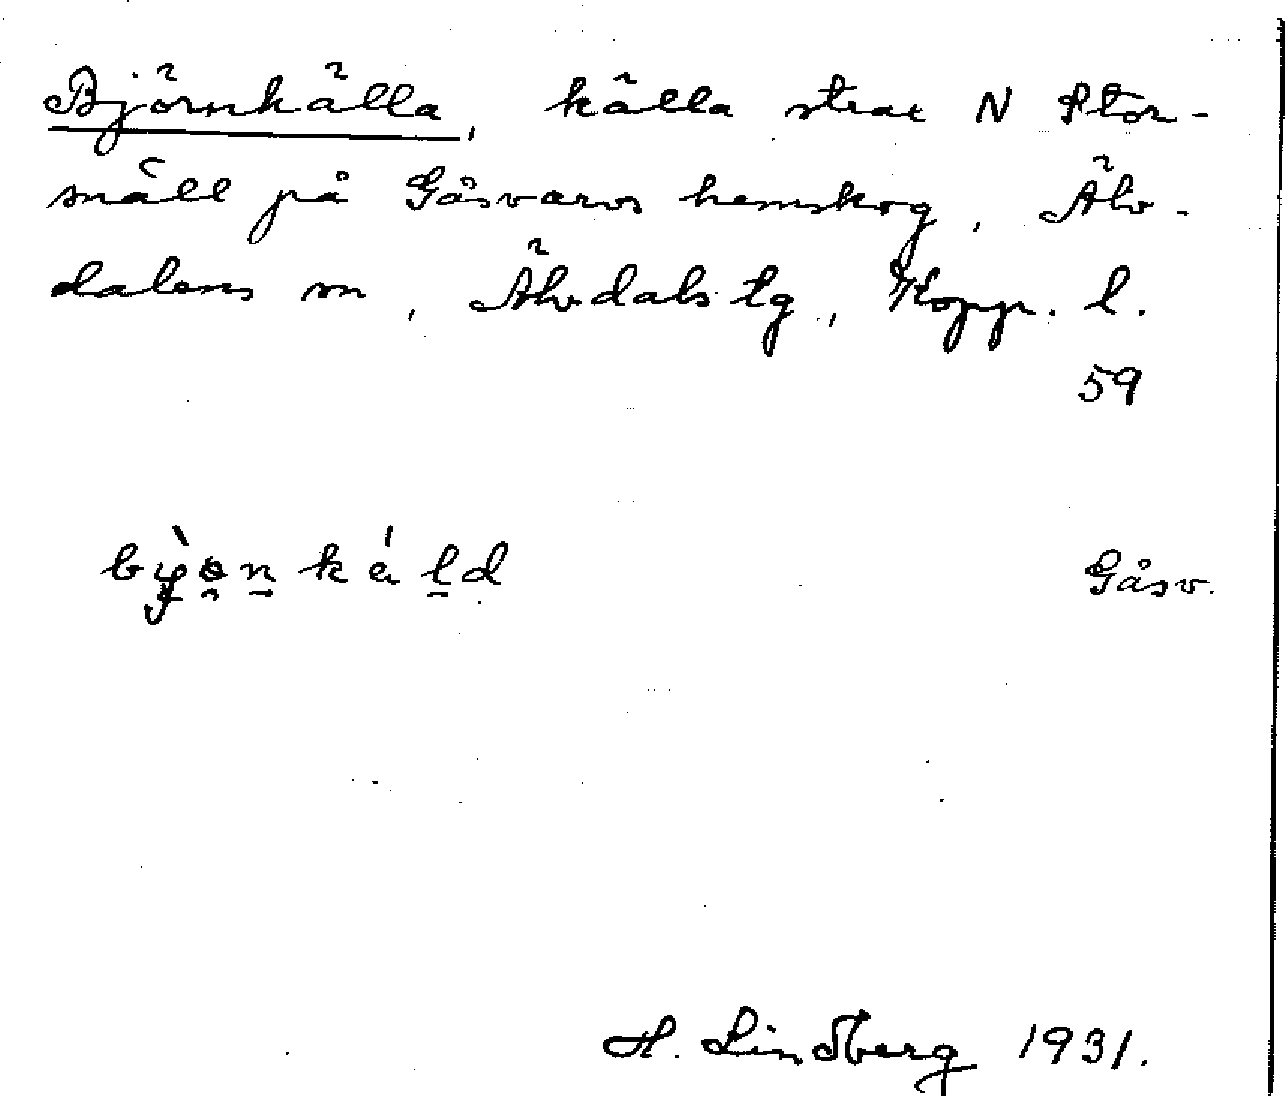 Björnkälla, källa strax N Stor-
smäll på Gåsvarvs hemskog, Älv-
dalens sn, Älvdals tg, Kopp. l.
59
Gåsv.
H. Lindberg 1931.